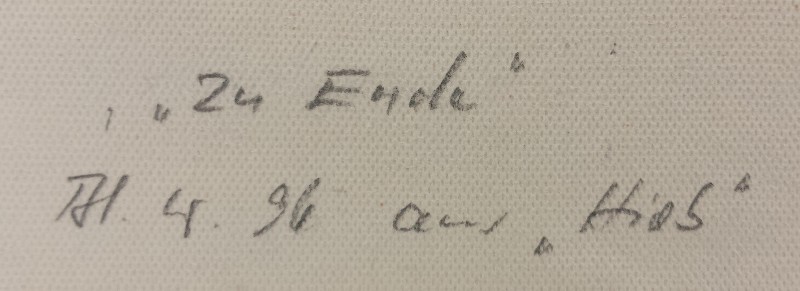 „Zu Ende“
4. 96 aus „Hiob“